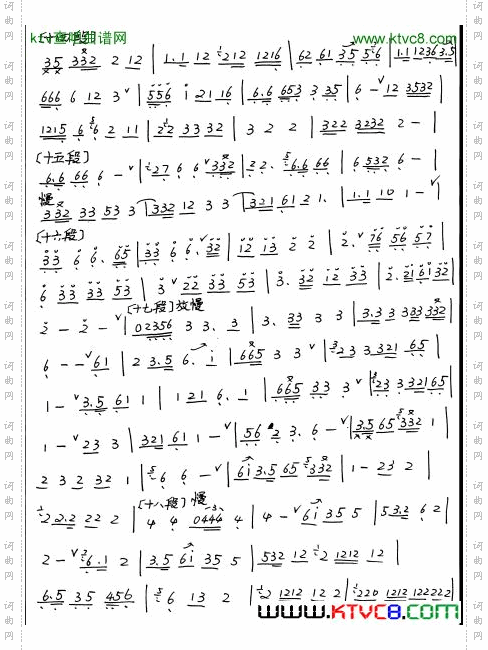 ktv音吧曲谱网 www.ktvc8.com
[十四段]
35 332 2 12 | 1.1 12 212 1216 | 62 61 35 56 | 1.1 1236 3.5
666 6 12 3 ∨ | 556 i 21 16 | 6.6 653 3 35 | 6 - ∨ 12 3532 |
1215 6 6 2 11 | 22 33 32 | 3 2 2 | 322 3232 2 - |
[十五段]
6.6 66 6 - ∨ | 27 6 6 ∨ 332 | 22. 6.6 66 | 6 532 6 - |
慢
332 33 53 3 | 332 12 3 3 | 321 61 21. | 1.1 10 1 - ∨ |
[十六段]
33 6 6. 65 | 33 6 6. 32 | 12 13 2 2 | 2. 76 56 57 |
6 33 33 53 | 3 ∨ 22 33 53 | 3. 32 12 33 | 2. 21 61 32 |
[十七段] 放慢
2 - 2 - ∨ | 02356 3 3. 3 | 3. 33 3 3 | 3.3 33 33 332 |
6 - - ∨ 61 | 2 3.5 6. i | 665 3 3 ∨ | 23 3 321 65 |
1 - ∨ 3.5 61 1 | 1 21 6. 1 | 665 33 3 ∨ | 23 3 321 65 |
1 - ∨ 23 3 | 321 61 1 - ∨ | 56 2 3. 6 - ∨ | 3.5 65 332 1 |
2 32 32 1 | 6 6 - ∨ | 6i 3.5 65 332 | 1 - 23 2 |
[十八段] 慢
2 2.2 22 2 | 4 4 0444 4 | 4 - ∨ 6i 35 5 | 53.2 6 2 |
2 - ∨ 6.1 2 | 3.5 6i 35 5 | 532 12 2 1212 12 |
6.5 35 456 | 6 13 2 | 2 1212 12 2 | 220 1212 122222 |
www.KTVC8.com
词曲网